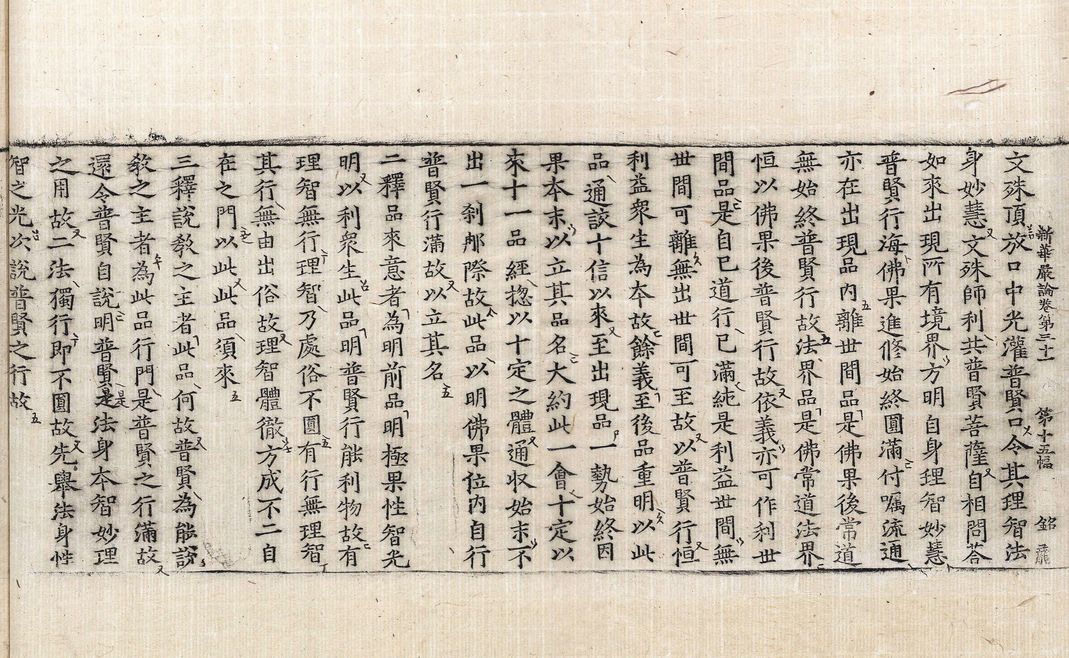 新華嚴論卷第三十一 第十五幅 銘 罷
文殊頂放口中光灌普賢口令其理智法
身妙慧文殊師利共普賢菩薩自相問荅
如來出現所有境界方明自身理智妙慧
普賢行海佛果進修始終圓滿付囑流通
亦在出現品內離世間品是佛果後常道
無始終普賢行故法界品是佛常道法界
恒以佛果後普賢行故依義亦可作利世
間品是自已道行已滿純是利益世間無
世間可離無出世間可至故以普賢行恒
利益衆生爲夲故餘義至後品重明以此
品通該十信以來至出現品一勢始終因
果本末以立其品名大約此一會十定以
來十一品經揔以十定之體通收始末不
出一刹那際故此品以明佛果位內自行
普賢行滿故以立其名
二釋品來意者爲明前品明極果性智光
明以利衆生此品明普賢行能利物故有
理智無行理智乃處俗不圓有行無理智
其行無由出俗故理智體徹方成不二自
在之門以此此品須來
三釋說敎之主者此品何故普賢爲能說
敎之主者為此品行門是普賢之行滿故
還令普賢自說明普賢是法身夲智妙理
之用故二法獨行即不圓故先舉法身性
智之光次說普賢之行故